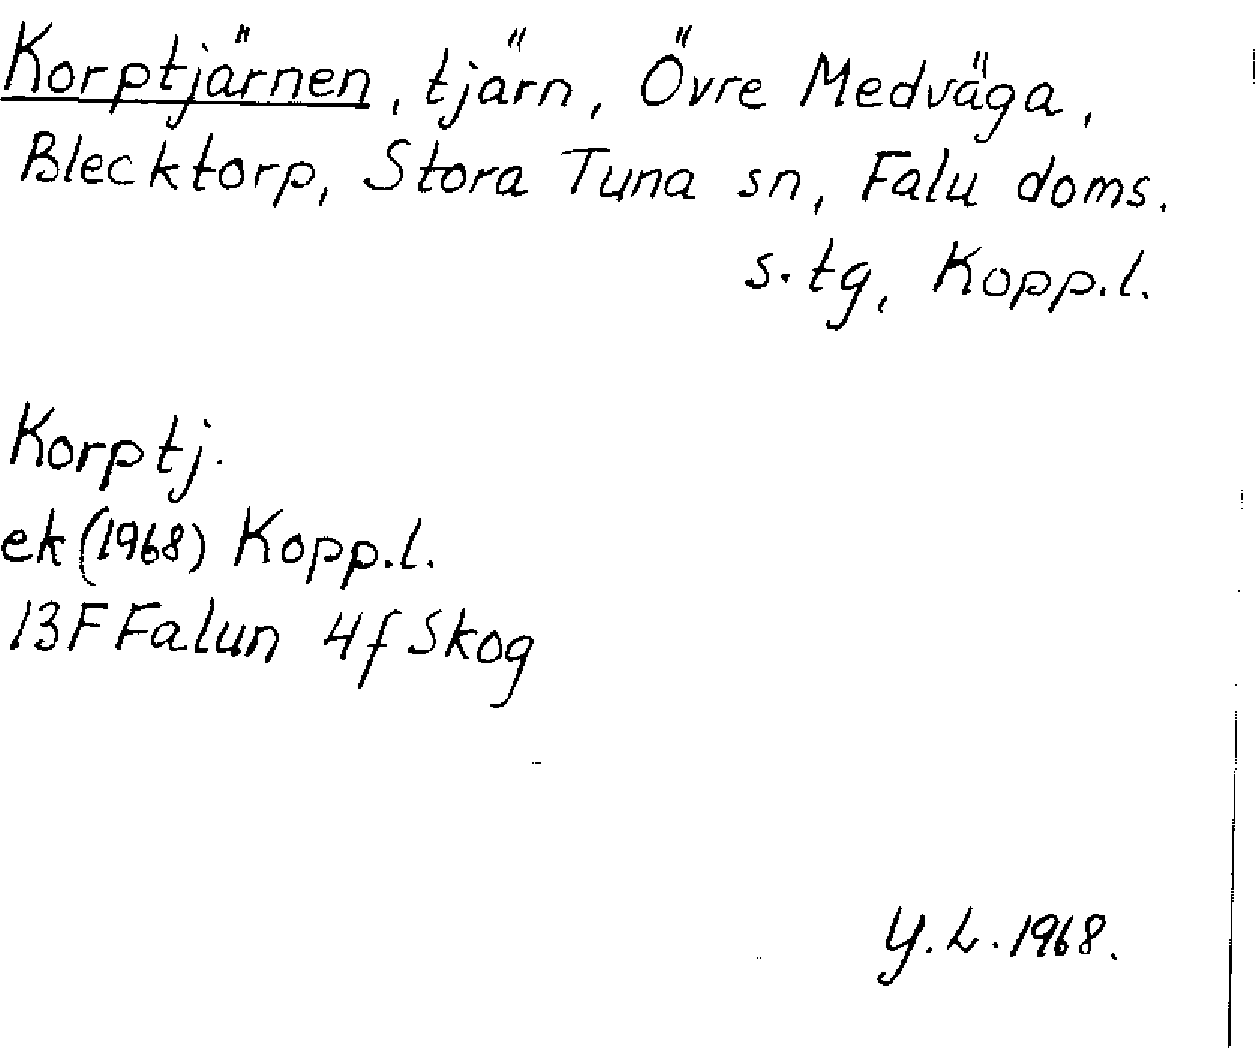 Korptjärnen, tjärn, Övre Medväga,
Blecktorp, Stora Tuna sn, Falu doms.
s.tg, Kopp.l.
Korptj.
ek (1968) Kopp.l.
13F Falun 4f Skog
Y.L. 1968.